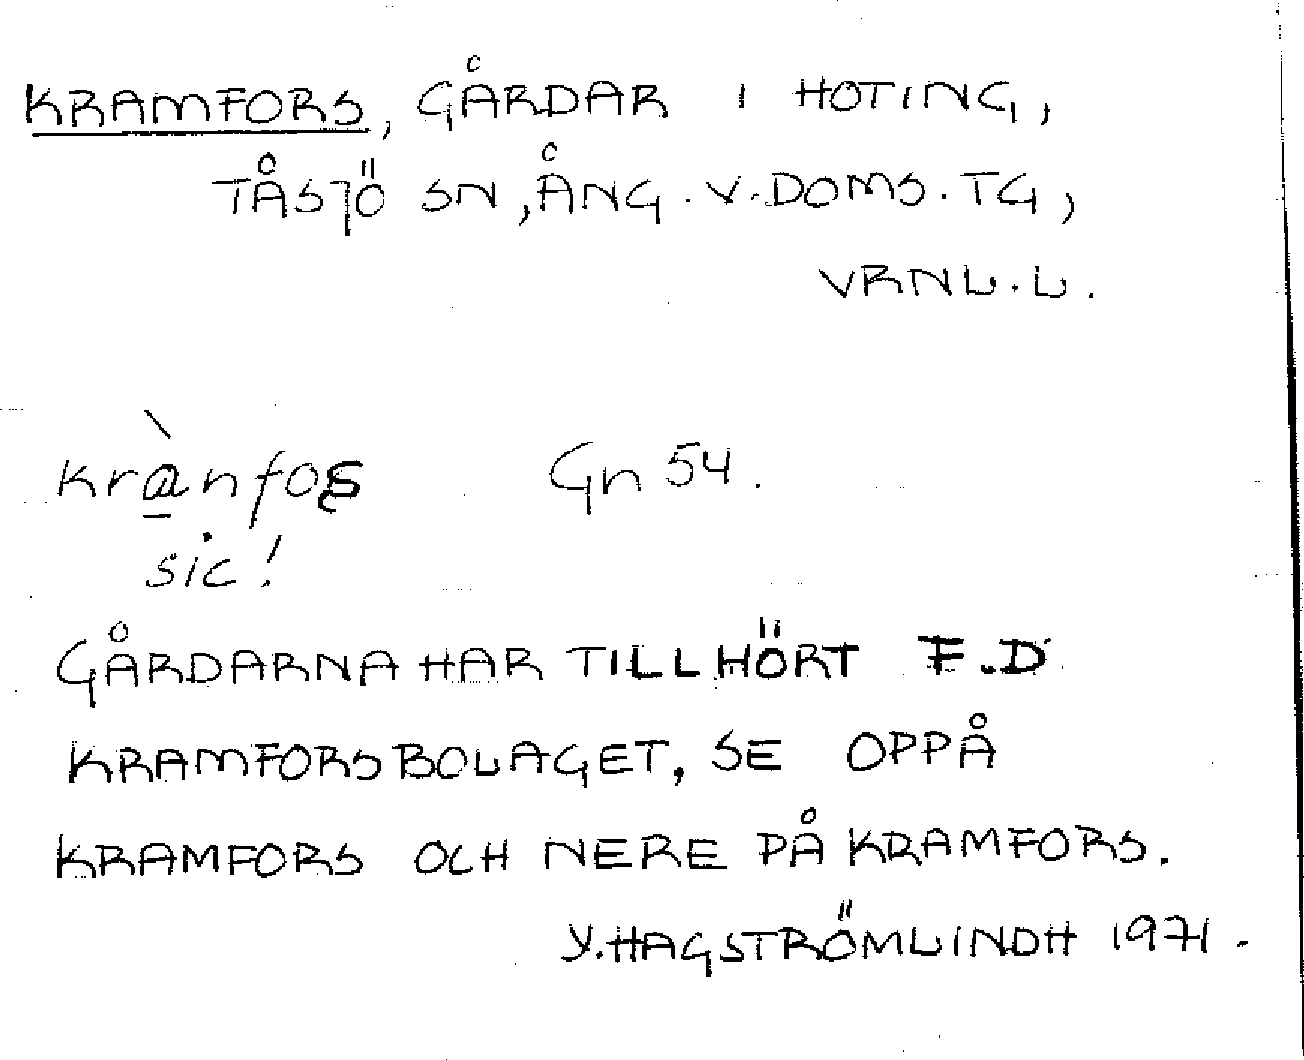 KRAMFORS, GÅRDAR I HOTING,
TÅSJÖ SN, ÅNG. V. DOMS. TG,
VRNL. L.
krànfos Gn 54.
sic!
GÅRDARNA HAR TILLHÖRT F.D
KRAMFORSBOLAGET, SE OPPÅ
KRAMFORS OCH NERE PÅ KRAMFORS.
Y. HAGSTRÖMLINDH 1971.